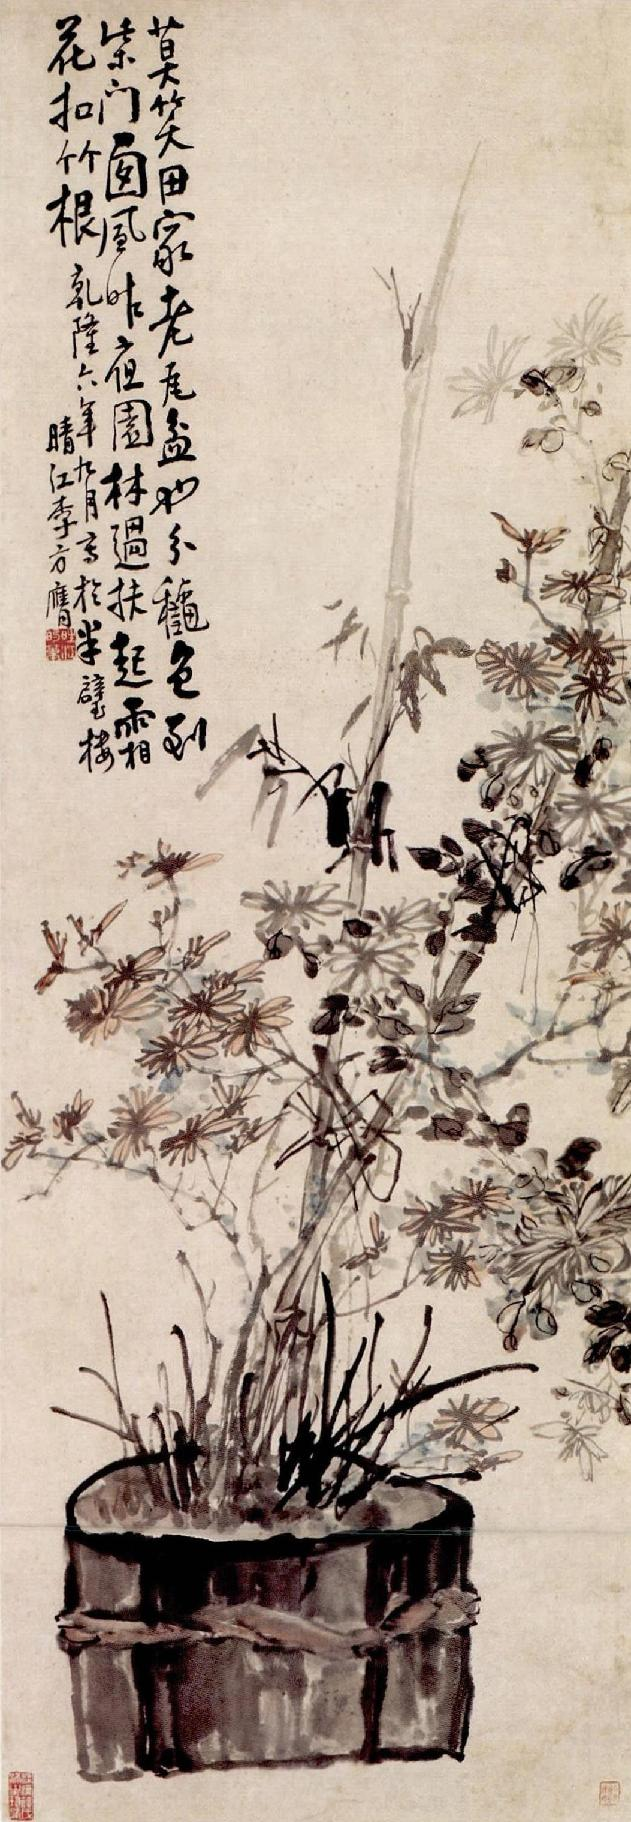 莫笑田家老瓦盆也分穐色到
柴門卥風昨夜園林過扶起霜
花扣竹根
乾隆六年九月寫於半壁樓
晴江李方膺